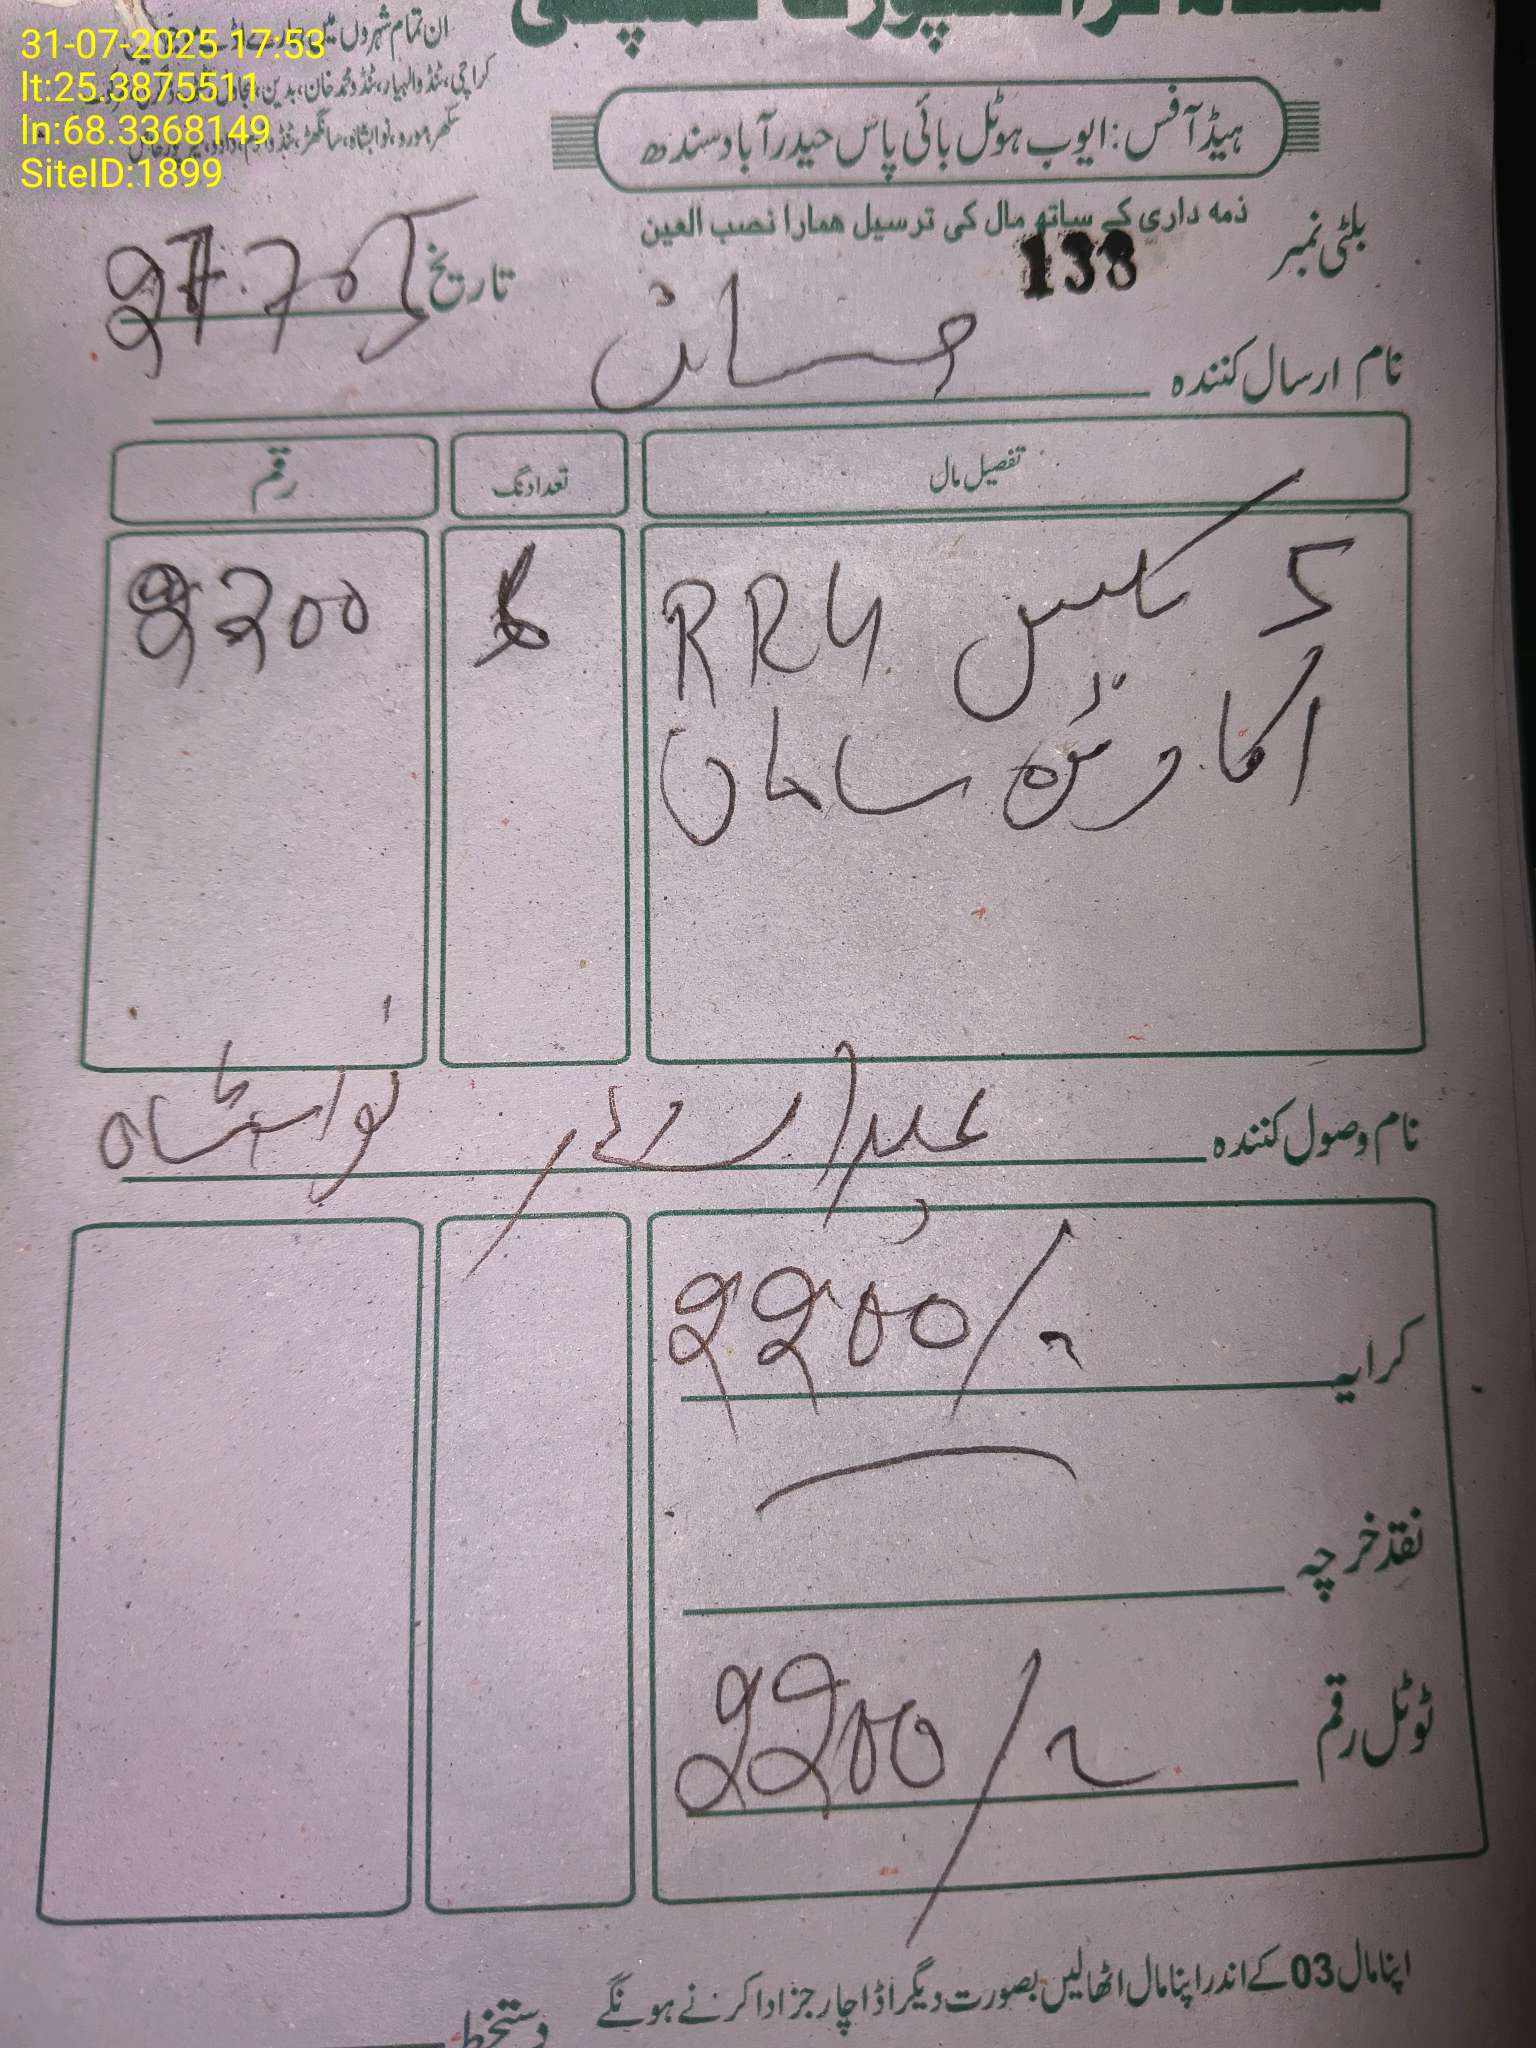 31-07-2025 17:53
lt:25.3875511
ln:68.3368149
SiteID:1899
ان تمام شہروں میں
کراچی، ٹنڈوالہیار، ٹنڈو محمد خان، بدین،
سکھر، مورو، نوابشاہ، سانگھڑ،
ہیڈ آفس: ایوب ہوٹل بائی پاس حیدرآباد سندھ
ذمہ داری کے ساتھ مال کی ترسیل ہمارا نصب العین
بلٹی نمبر 138
تاریخ 27.7
نام ارسال کنندہ حسان
تفصیل مال تعداد نگ رقم
5 کیس RRU 2200
سامان
نام وصول کنندہ نوابشاہ
کرایہ 2200/
نقد خرچہ
ٹوٹل رقم 2200/
اپنا مال 03 کے اندر اپنا مال اٹھالیں بصورت دیگر اڈا چارجز ادا کرنے ہونگے
دستخط